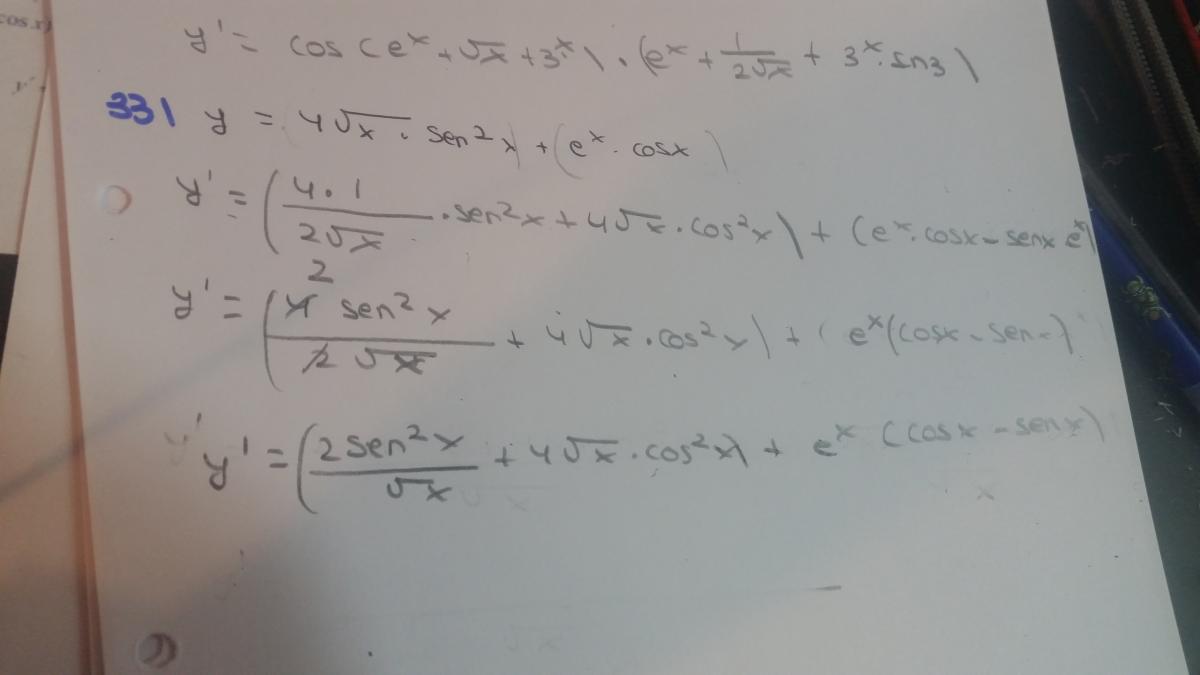 cos x)
y' = cos (e^x + √x + 3^x) · (e^x + 1/(2√x) + 3^x · sn3)
331 y = (4√x · sen²x) + (e^x · cosx)
y' = (4·1/(2√x) · sen²x + 4√x · cos²x) + (e^x · cosx - senx e^x)
2
y' = (4 sen²x/(2√x) + 4√x · cos²x) + (e^x (cosx - senx)
y' = (2sen²x/√x + 4√x · cos²x) + e^x (cosx - senx)